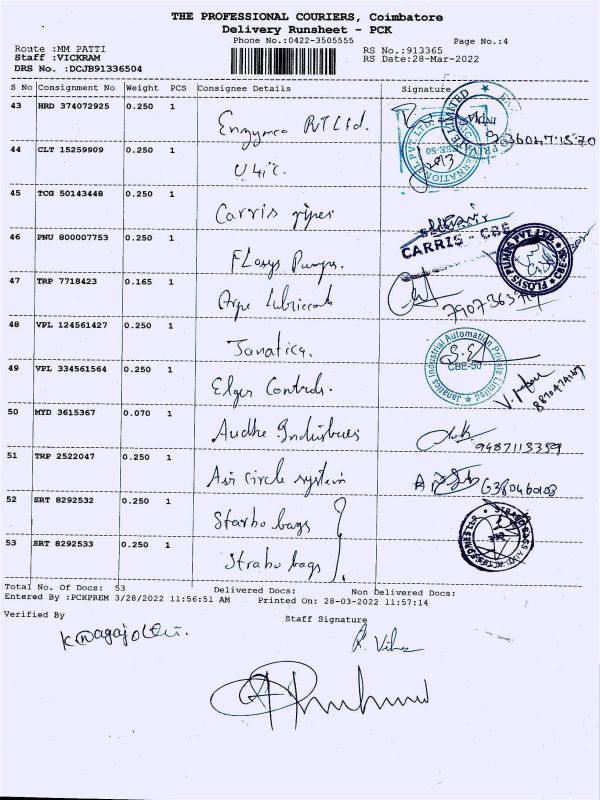 THE PROFESSIONAL COURIERS, Coimbatore
Delivery Runsheet - PCK
Phone No.:0422-3505555
Page No.:4
Route :MM PATTI
RS No.:913365
Staff :VICKRAM
RS Date:28-Mar-2022
DRS No. :DCJB91336504
S No Consignment No Weight PCS Consignee Details Signature
43 HRD 374072925 0.250 1
Enzymco Pvt Ltd.
44 CLT 15259909 0.250 1
45 TCG 50143448 0.250 1
Carris pipes
CARRIS - CBE
46 PNU 800007753 0.250 1
Flosys Pumps.
FLOSYS PUMPS PVT LTD. CBE
47 TRP 7718423 0.165 1
Lubricants
48 VPL 124561427 0.250 1
Janatics.
Janatics Industrial Automation Private Limited
CBE-50
49 VPL 334561564 0.250 1
Elger Controls.
50 MYD 3615367 0.070 1
9487113359
51 TRP 2522047 0.250 1
Air circle system
52 SRT 8292532 0.250 1
Starbo bags
53 SRT 8292533 0.250 1
Strabo bags
Total No. Of Docs: 53 Delivered Docs: Non Delivered Docs:
Entered By :PCKPREM 3/28/2022 11:56:51 AM Printed On: 28-03-2022 11:57:14
Verified By
Staff Signature